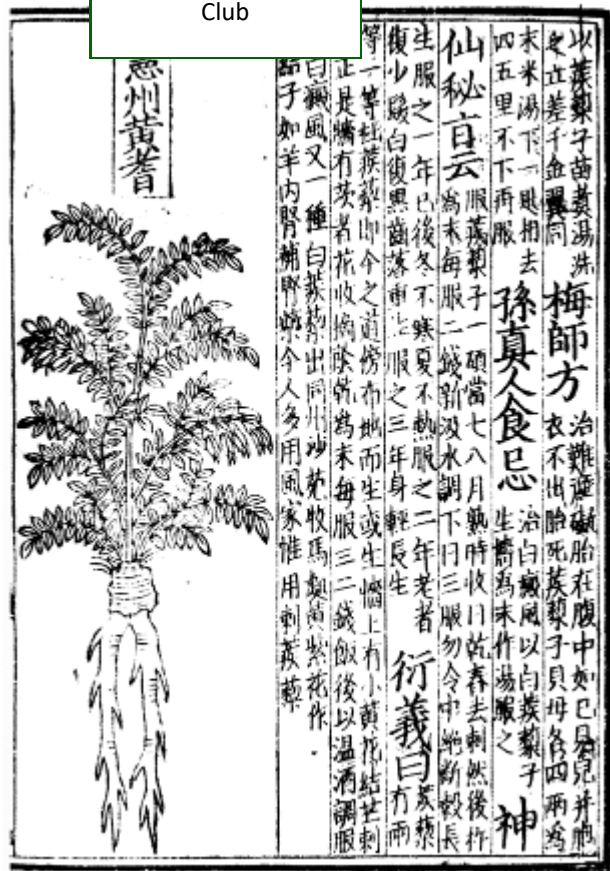 Club
以蒺藜子苗煮湯洗
之立差千金翼同
梅師方
治難產礙胎在腹中如已見兒并胞
衣不出胎死蒺藜子貝母各四兩為
末米湯下一匙相去
四五里不下再服
孫真人食忌
治白癜風以白蒺藜子
生擣為末作湯服之
神
仙秘旨云
服蒺藜子一碩當七八月熟時收日乾舂去刺然後杵
為末每服二錢新汲水調下日三服勿令中絕斷穀長
生服之一年已後冬不寒夏不熱服之二年老者
復少髮白復黑齒落重生服之三年身輕長生
衍義曰
蒺藜
有兩
等一等杜蒺藜即今之道傍布地而生或生墻上有小黃花結芒刺
正是牆有茨者花收摘陰乾為末每服三二錢飯後以温酒調服
白癜風又一種白蒺藜出同州沙苑牧馬處黃紫花作
結子如羊內腎補腎藥今人多用風家惟用刺蒺藜
憲州黃耆